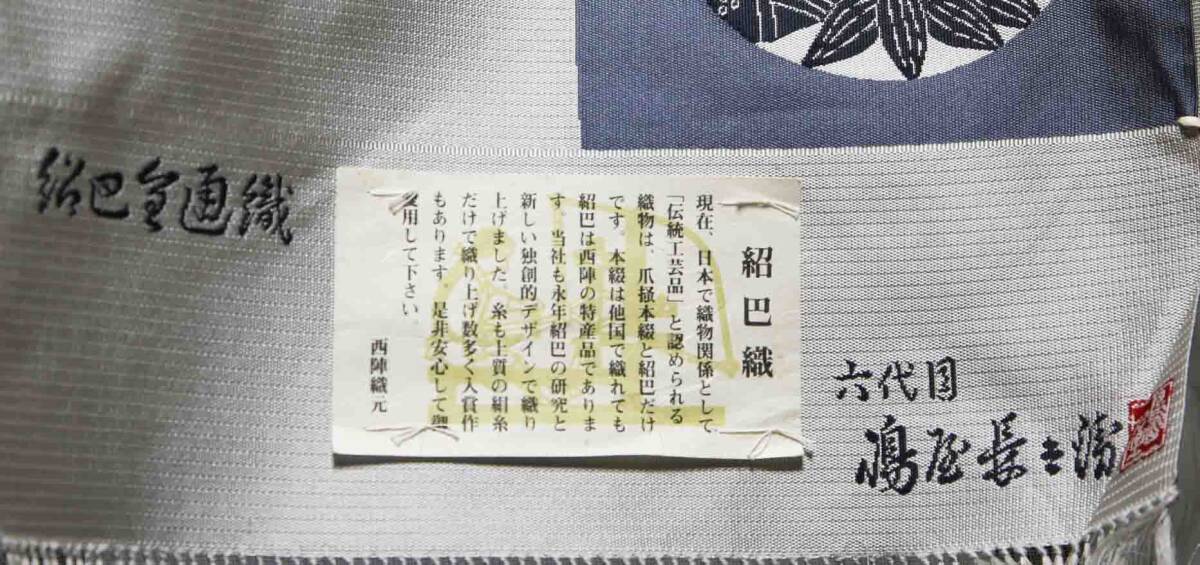 紹巴織
現在、日本で織物関係として
「伝統工芸品」と認められる
織物は、爪掻本綴と紹巴だけ
です。本綴は他国で織れても
紹巴は西陣の特産品でありま
す。当社も永年紹巴の研究と
新しい独創的デザインで織り
上げました。糸も上質の絹糸
だけで織り上げ数多く入賞作
もあります。是非安心して御
愛用して下さい。
西陣織元
六代目
嶋屋長
紹巴
通織